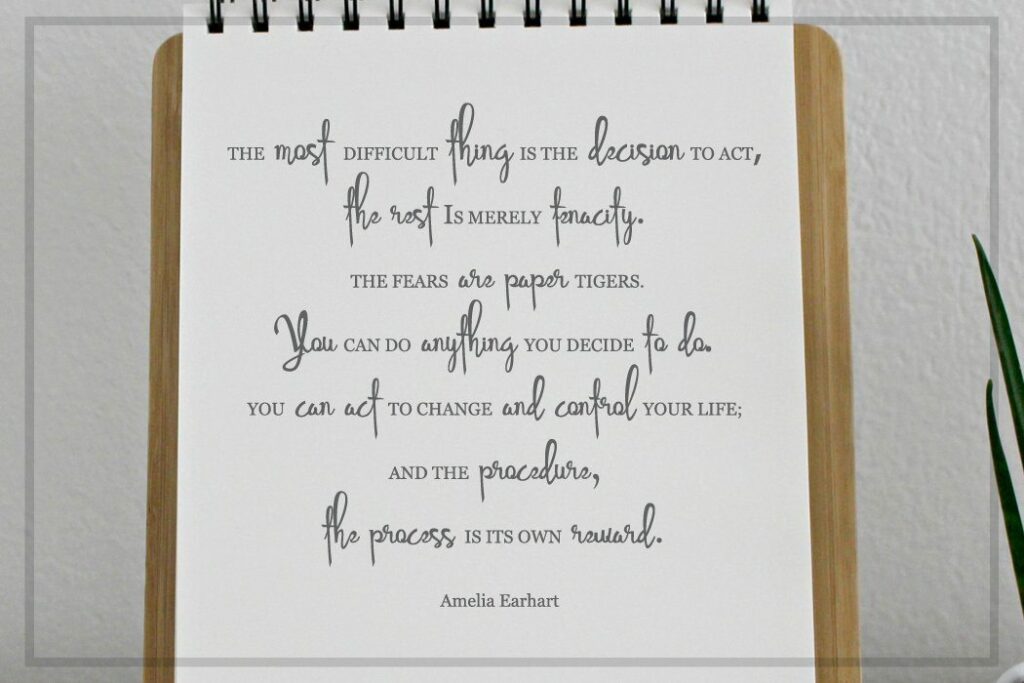 THE most DIFFICULT thing IS THE decision TO ACT,
the rest IS MERELY tenacity.
THE FEARS are paper TIGERS.
You CAN DO anything YOU DECIDE to do.
YOU can act TO CHANGE and control YOUR LIFE;
AND THE procedure,
the process IS ITS OWN reward.
Amelia Earhart